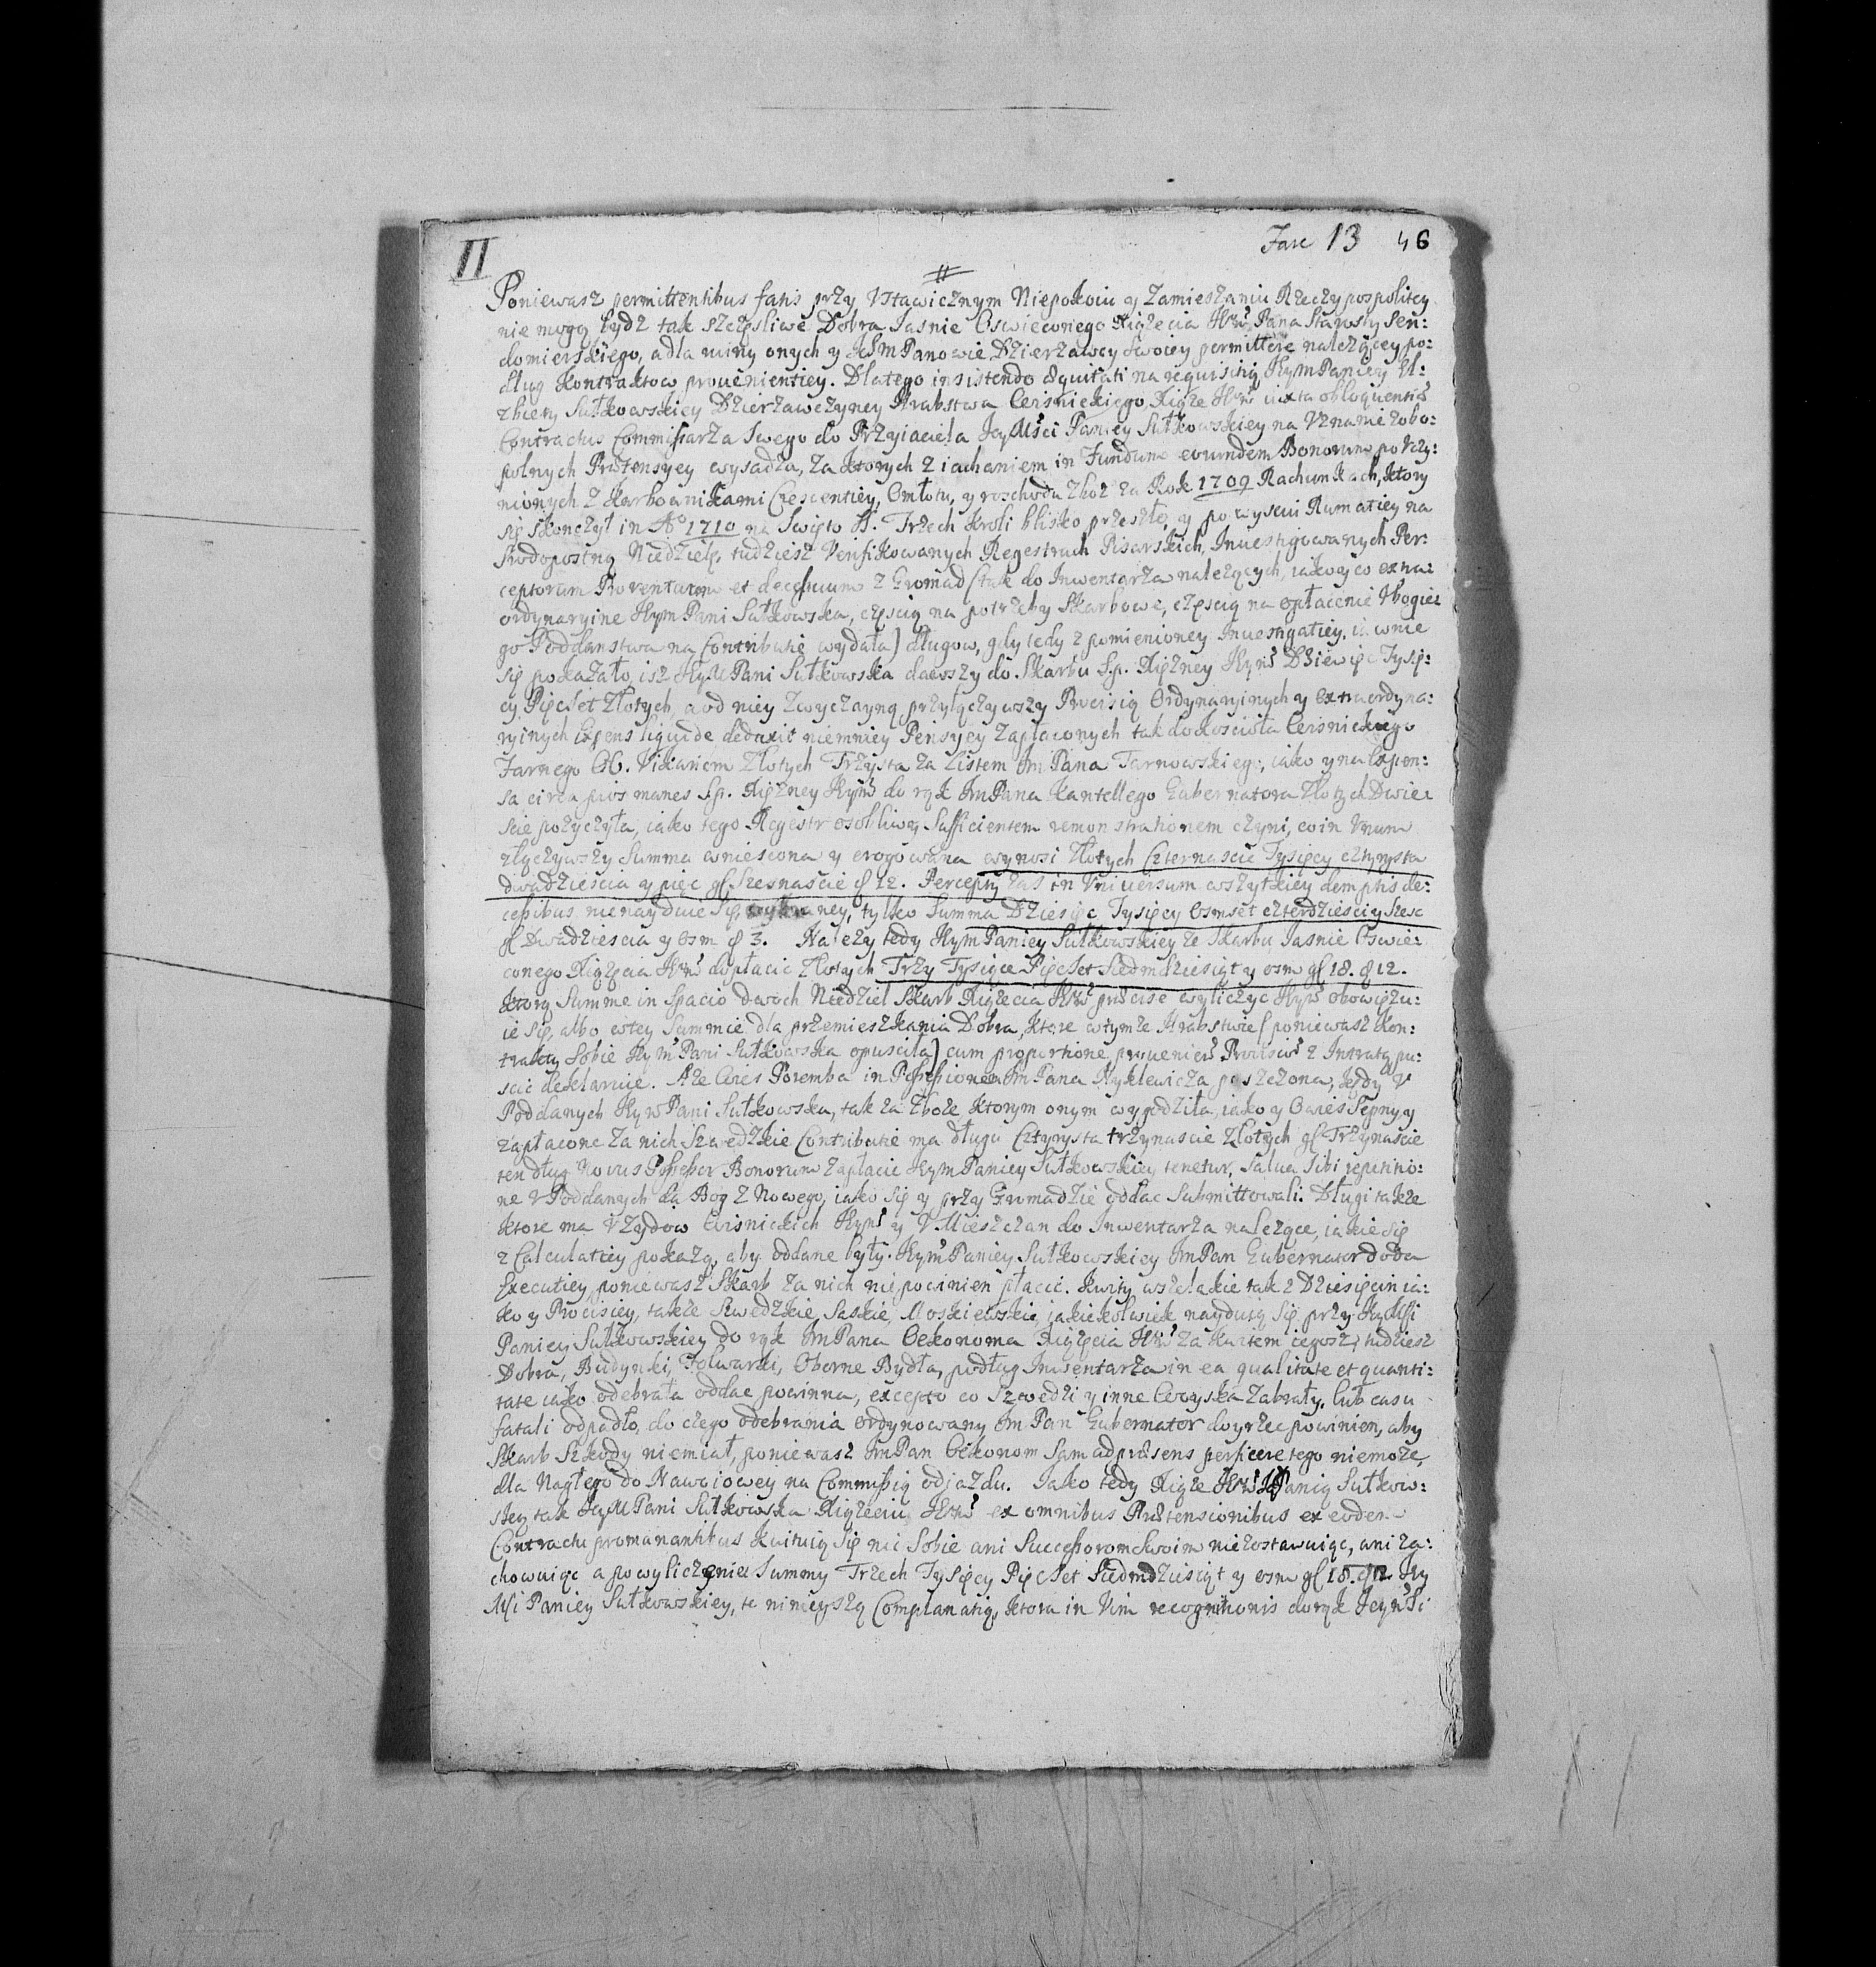 II
Fasc 13 46
Poniewasz permittentibus fatis przy Vstawicznym Niepokoiu y Zamieszaniu Rzeczypospolitey
nie mogą bydz tak szczęsliwe Dobra Jasnie Oswieconego Xiążecia Pana Starosty Sen:
domierskiego, adla ruiny onych y Panowie Dzierzawcy Swoiey permittere należącey po:
dług Kontraktow prouenientiey. Dlatego insistendo æquitati na requisitią Paniey El:
zbiety Sułkowskiey Dzierzawczyney Hrabstwa Wisnickiego, Xiąże iuxta obloquentiã
Contractus Commissarza Swego do Przyiaciela Paniey Sułkowskiey na Vznanie zobo:
polnych Prætensyey wysadza, za ktorych ziachaniem in Fundum eorumdem Bonorum po Vczy:
nionych z Karbownikami Crescentiey, Omłotu, y rozchodu zboz za Rok 1709 Rachunkach, ktory
się skonczył in Aº 1710 na Swięto SS. Trzech Kroli blisko przeszłe, y po wysciu Rumatiey na
Srodopostną Niedzielę, tudziesz Verifikowanych Regestrach Pisarskich, Inuestigowanych Per:
ceptorum Prouentuum et decessuum z Gromad (tak do Inwentarza należących, iako y co extra:
ordynaryine Pani Sułkowska, częscią na potrzeby Skarbowe, częscią na opłacenie Vbogie:
go Poddanstwa na Contributie wydała) długow, gdy tedy z pomienioney Inuestigatiey, iawnie
się pokazało, isz Pani Sułkowska dawszy do Skarbu S.p. Xiężney Dziewięc Tysię:
cy Pięcset Złotych, a od niey zwyczayną przyłączywszy Prowisią Ordynaryinych y extraordyna:
ryinych Expens liquide deduxit niemniey Pensyey Zapłaconych tak do Kosciola Wisnickiego
Farnego Vikariom Złotych Trzysta za Listem Pana Tarnowskiego, iako y na Expen:
sa circa pios manes S.p. Xiężney do rąk Pana Kantellego Gubernatora Złotych Dwie:
scie pożyczyła, iako tego Regestr osobliwy Sufficientem remonstrationem czyni, co in Vnum
złączywszy Summa wniesiona y erogowana wynosi Złotych Czternascie Tysięcy cztyrysta
dwadziescia y pięc gſ Szesnascie ₰ 12. Percepty zas in Vniuersum wszytkiey demptis de:
cessibus nie nayduie się, tylko Summa Dziesięc Tysięcy Osmset czterdziesci y Szesc
gſ Dwadziescia y Osm ₰ 3. Należy tedy Paniey Sułkowskiey ze Skarbu Jasnie Oswie:
conego Xiążęcia dopłacic Złotych Trzy Tysiące Pięcset Siedmdziesiąt y osm gſ 18. ₰ 12.
Ktorą Summe in Spacio dwoch Niedziel Skarb Xiążecia præcise wyliczyc obowiązu:
ie się, albo wtey Summie dla przemieszkania Dobra, ktore wtymze Hrabstwie (poniewasz Kon:
trakty Sobie Pani Sułkowska opusciła) cum proportione z Intratą pu:
scic deklaruie. Aże Wies Poremba in Possessionem Pana puszczona, kędy V
Poddanych Pani Sułkowska, tak za zboże ktorym onym wygodziła, iako y Owies Sepny y
zapłacone za nich Szwedzkie Contributie ma długu Cztyrysta trzynascie Złotych gſ Trzynascie
ten dług Novus Possessor Bonorum zapłacic Paniey Sułkowskiey tenetur, salua Sibi repetitio:
ne V Poddanych da Bog z Nowego, iako się y przy Gromadzie oddac Submittowali. Długi także
ktore ma V Zydow Wisnickich y V Mieszczan do Inwentarza należące, iakie się
z Calculatiey pokażą, aby oddane były Paniey Sułkowskiey Pan Gubernator doda
Executiey poniewasz Skarb za nich nie powinien płacic. Kwity wszelakie tak z Dziesięcin ia:
ko y Prowisiey, także Szwedzkie, Saskie, Moskiewskie, iakiekolwiek nayduią się przy
Paniey Sułkowskiey do rąk Pana Oekonoma Xiążęcia za Kwitem iegosz, tudziesz
Dobra, Budynki, Folwarki, Oborne Bydła, podług Inwentarza in ea qualitate et quanti:
tate iako odebrała oddac powinna, excepto co Szwedzi y inne Woyska Zabrały, lub casu
fatali odpadło, do czego odebrania ordynowany Pan Gubernator doyrzec powinien, aby
Skarb Szkody niemiał, poniewasz Pan Oekonom Sam ad præsens perficere tego niemoże,
dla Nagłego do Nawoiowey na Commissią odjazdu. Jako tedy Xiąże Panią Sułkow:
ską tak Pani Sułkowska Xiążecia ex omnibus Prætensionibus ex eodem
Contractu promanantibus kwituią się nic Sobie ani Successorom Swoim niezostawuiąc, ani za:
chowuiąc a po wyliczeniu Summy Trzech Tysięcy Pięcset Siedmdziesiąt y osm gſ 18. ₰ 12
Paniey Sułkowskiey, te ninieyszą Complanatią, ktora in Vim recognitionis do rąk